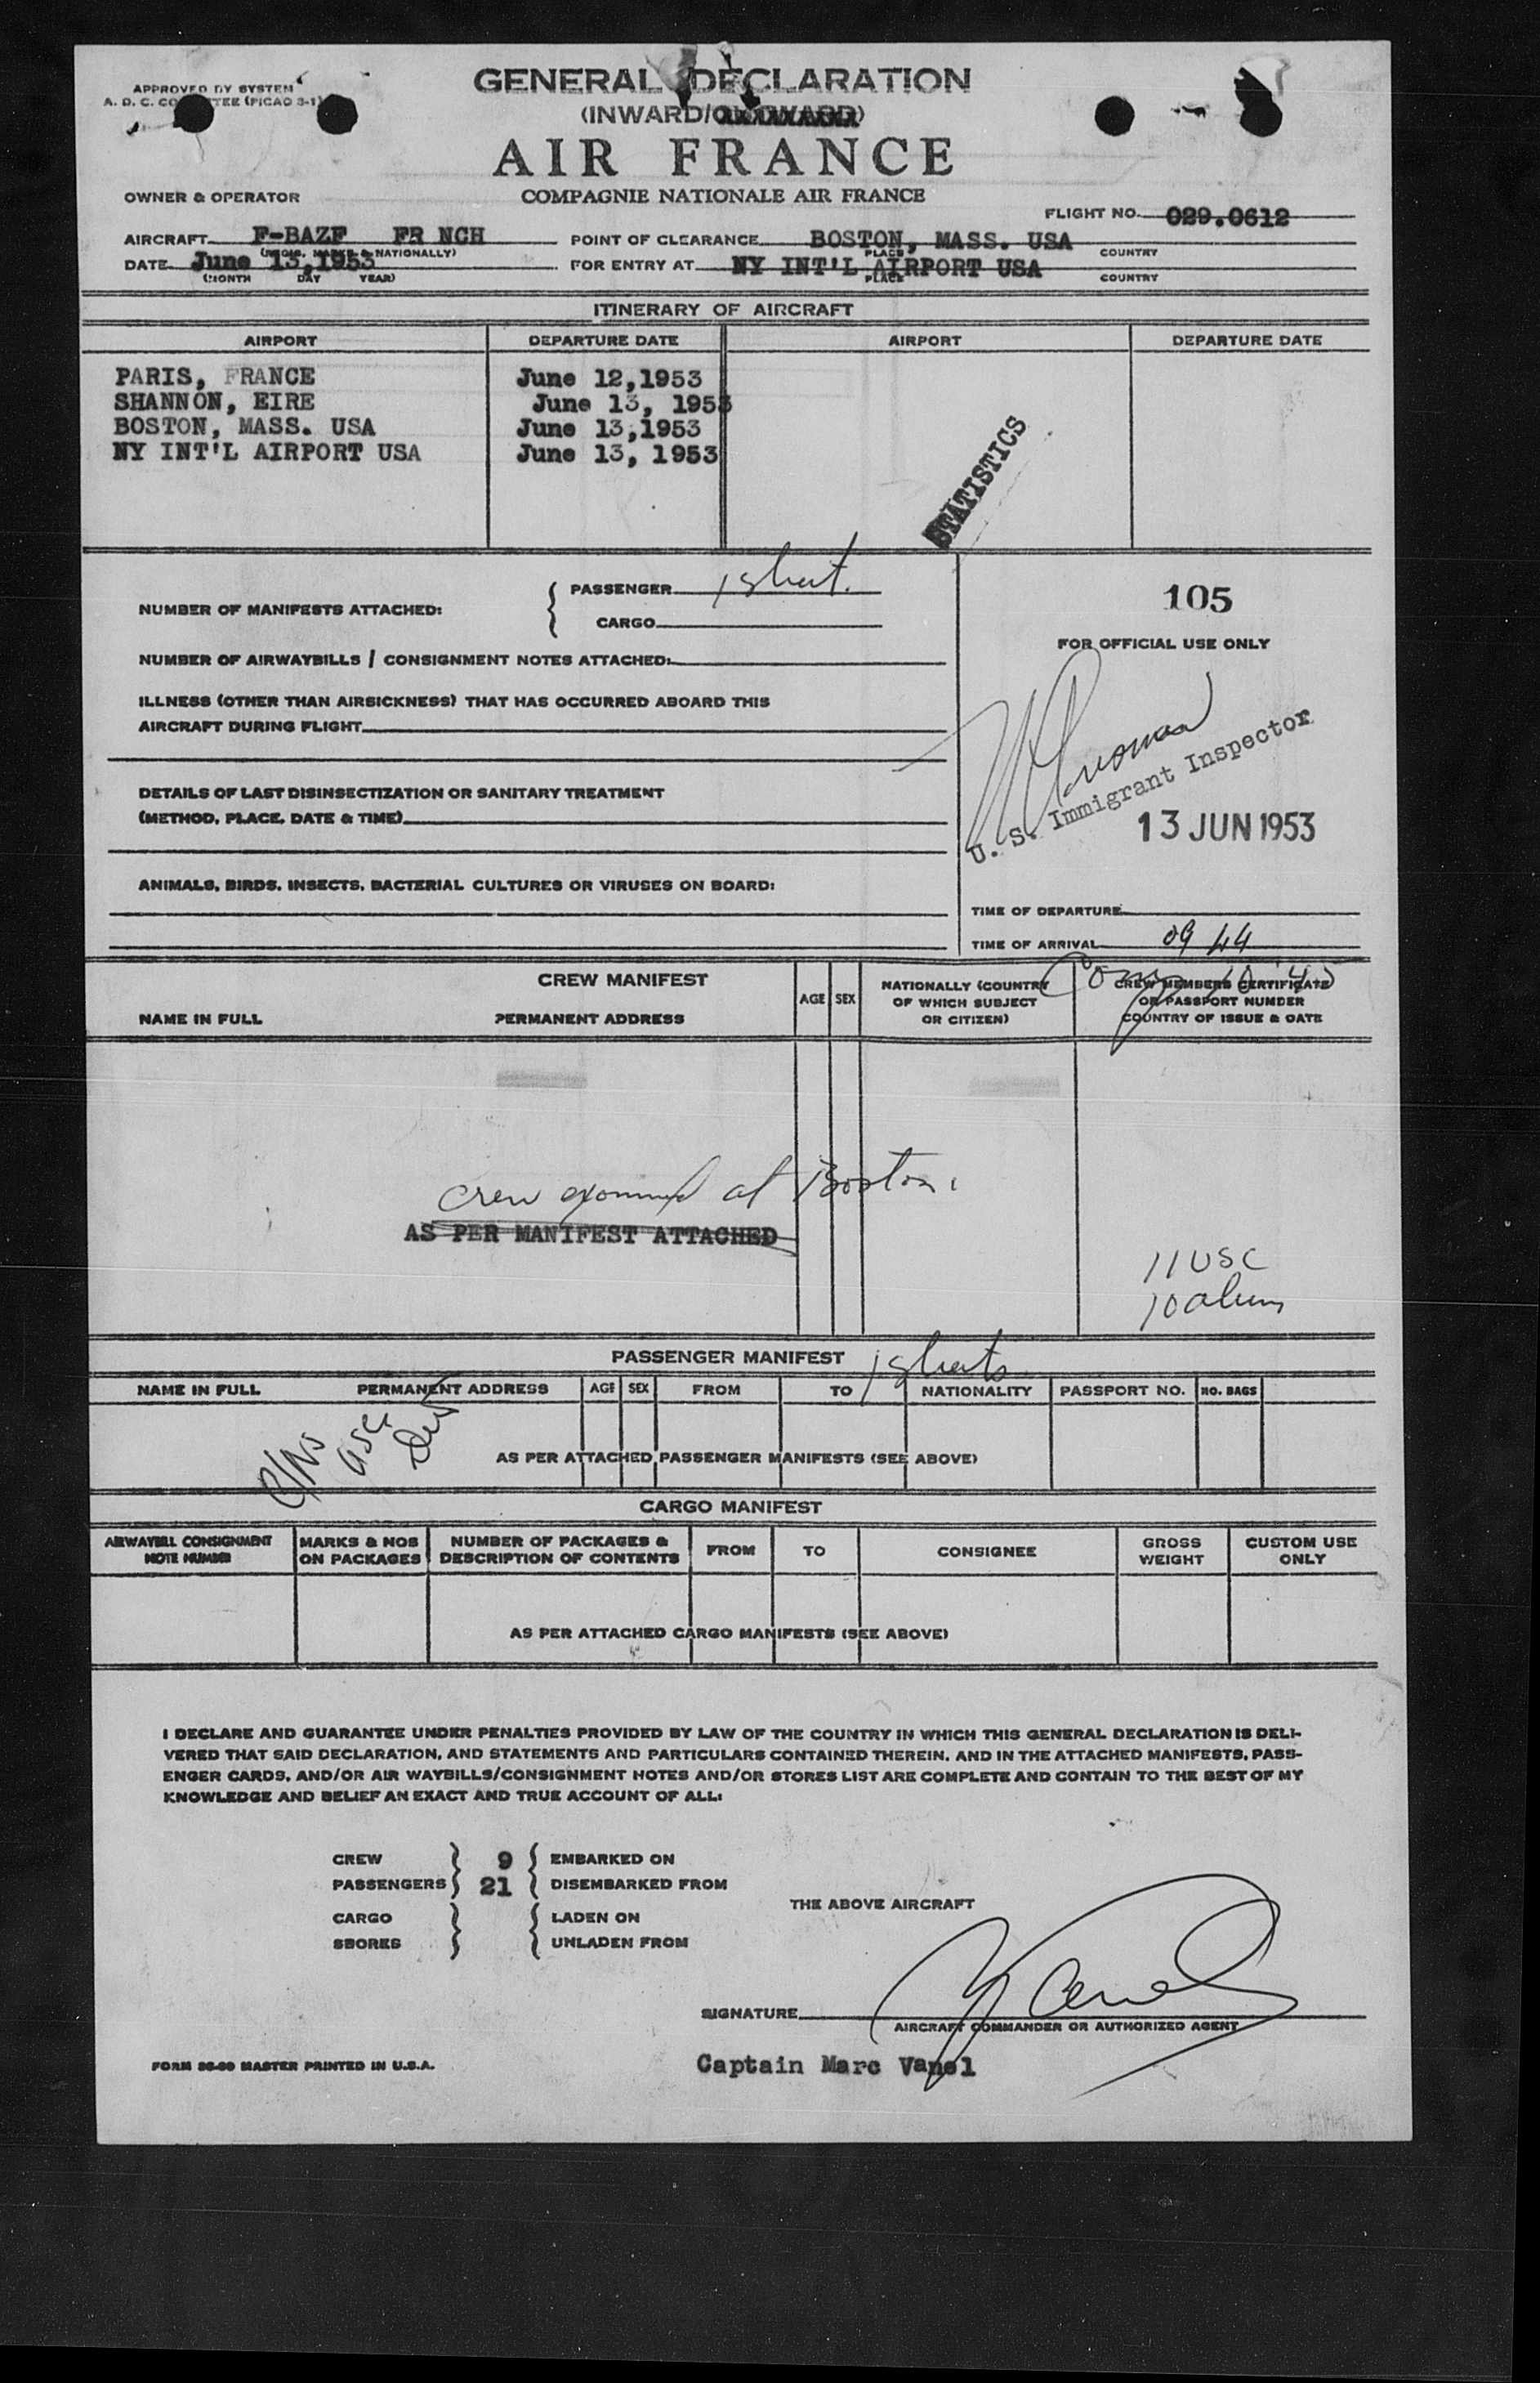 APPROVED BY SYSTEM
A. D. C. COMMITTEE (PICAO 3-1)
GENERAL DECLARATION
(INWARD/
AIR FRANCE
OWNER & OPERATOR
COMPAGNIE NATIONALE AIR FRANCE
FLIGHT NO. 029.0612
AIRCRAFT F-BAZF FR NCH
POINT OF CLEARANCE BOSTON, MASS. USA
(REGIS. MARKS & NATIONALLY)
PLACE COUNTRY
DATE June 13,1953
FOR ENTRY AT NY INT'L AIRPORT USA
(MONTH DAY YEAR)
PLACE COUNTRY
ITINERARY OF AIRCRAFT
AIRPORT DEPARTURE DATE AIRPORT DEPARTURE DATE
PARIS, FRANCE June 12,1953
SHANNON, EIRE June 13, 1953
BOSTON, MASS. USA June 13,1953
NY INT'L AIRPORT USA June 13, 1953
STATISTICS
NUMBER OF MANIFESTS ATTACHED:
PASSENGER 1 sheet.
CARGO
105
FOR OFFICIAL USE ONLY
NUMBER OF AIRWAYBILLS / CONSIGNMENT NOTES ATTACHED:
ILLNESS (OTHER THAN AIRSICKNESS) THAT HAS OCCURRED ABOARD THIS
AIRCRAFT DURING FLIGHT
U. S. Immigrant Inspector
13 JUN 1953
DETAILS OF LAST DISINSECTIZATION OR SANITARY TREATMENT
(METHOD, PLACE, DATE & TIME)
ANIMALS, BIRDS, INSECTS, BACTERIAL CULTURES OR VIRUSES ON BOARD:
TIME OF DEPARTURE
TIME OF ARRIVAL 09 44
Comp 10 45
CREW MANIFEST
NAME IN FULL PERMANENT ADDRESS
AGE SEX
NATIONALLY (COUNTRY
OF WHICH SUBJECT
OR CITIZEN)
CREW MEMBERS CERTIFICATE
OR PASSPORT NUMBER
COUNTRY OF ISSUE & DATE
crew examined at Boston.
AS PER MANIFEST ATTACHED
11 USC
10 aliens
PASSENGER MANIFEST 1 sheets
NAME IN FULL PERMANENT ADDRESS AGE SEX FROM TO NATIONALITY PASSPORT NO. NO. BAGS
AS PER ATTACHED PASSENGER MANIFESTS (SEE ABOVE)
CARGO MANIFEST
AIRWAYBILL CONSIGNMENT
NOTE NUMBER
MARKS & NOS
ON PACKAGES
NUMBER OF PACKAGES &
DESCRIPTION OF CONTENTS
FROM TO CONSIGNEE
GROSS
WEIGHT
CUSTOM USE
ONLY
AS PER ATTACHED CARGO MANIFESTS (SEE ABOVE)
I DECLARE AND GUARANTEE UNDER PENALTIES PROVIDED BY LAW OF THE COUNTRY IN WHICH THIS GENERAL DECLARATION IS DELI-
VERED THAT SAID DECLARATION, AND STATEMENTS AND PARTICULARS CONTAINED THEREIN, AND IN THE ATTACHED MANIFESTS, PASS-
ENGER CARDS, AND/OR AIR WAYBILLS/CONSIGNMENT NOTES AND/OR STORES LIST ARE COMPLETE AND CONTAIN TO THE BEST OF MY
KNOWLEDGE AND BELIEF AN EXACT AND TRUE ACCOUNT OF ALL:
CREW 9 EMBARKED ON
PASSENGERS 21 DISEMBARKED FROM
THE ABOVE AIRCRAFT
CARGO LADEN ON
SBORES UNLADEN FROM
SIGNATURE
AIRCRAFT COMMANDER OR AUTHORIZED AGENT
Captain Marc Vanel
FORM 26-99 MASTER PRINTED IN U.S.A.